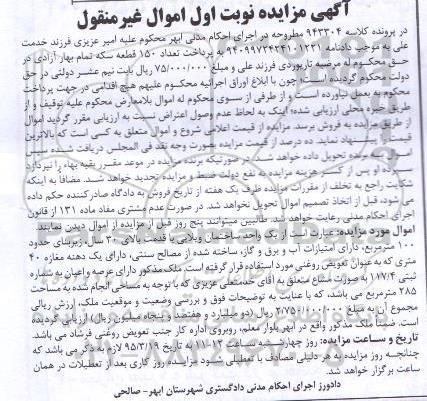 آگهی مزایده نوبت اول اموال غیرمنقول
در پرونده کلاسه ۹۴۳۳۰۴ مطروحه در اجرای احکام مدنی ابهر محکوم علیه امیر عزیزی فرزند خدمت
علی به موجب دادنامه ۹۴۰۹۹۷۲۴۲۴۱۰۱۲۲۱ به پرداخت تعداد ۱۵۰ قطعه سکه تمام بهار آزادی در
حق محکوم له مرضیه تاریوردی فرزند علی و مبلغ ۷۵/۰۰۰/۰۰۰ ریال بابت نیم عشر دولتی در حق
دولت محکوم گردیده است؛ چون با ابلاغ اوراق اجرائیه محکوم علیهم هیچ اقدامی در جهت پرداخت
محکوم به بعمل نیاورده است و از طرفی از سوی محکوم له اموال بلامعارض محکوم علیه توقیف و از
طریق خبره محلی ارزیابی شده؛ اینک به لحاظ عدم وصول اعتراض نسبت به ارزیابی مقرر گردید اموال
از طریق مزایده به فروش برسد. مزایده از قیمت اعلامی شروع و اموال متعلق به کسی است که بالاترین
قیمت را پیشنهاد نماید. ده درصد از قیمت مزایده بصورت وجه نقد فی المجلس دریافت شده سپس
اموال به برنده تحویل داده خواهد شد. در صورتیکه برنده مزایده در موعد مقرر بقیه بها را نپردازد
سپرده او پس از کسر هزینه مزایده به نفع دولت ضبط و مزایده تجدید خواهد شد. مضافا به اینکه
شکایت راجع به تخلف از مقررات مزایده ظرف یک هفته از تاریخ فروش به دادگاه صادرکننده حکم داده
می شود، قبل از اتخاذ تصمیم اموال تحویل نخواهد شد. در صورت عدم مشتری مفاد ماده ۱۳۱ از قانون
اجرای احکام مدنی رعایت خواهد شد. طالبین میتوانند پنج روز قبل از مزایده از اموال دیدن نمایند.
اموال مورد مزایده: عبارت است از یک واحد ساختمان ویلایی با قدمت بالای ۳۰ سال زیربنای حدود
۱۰۰ مترمربع، دارای امتیازات آب و برق و گاز، ساخته شده از مصالح سنتی، دارای یک دهنه مغازه ۴۰
متری که به عنوان تعویض روغنی مورد استفاده قرار گرفته است. ملک مذکور دارای عرصه و اعیان به شماره
ثبتی ۱۱۷/۴ به صورت مشاع متعلق به آقای خدمتعلی عزیزی که با توجه به مساحی انجام شده به مساحت
۲۸۵ مترمربع می باشد، که با عنایت به توضیحات فوق و بررسی وضعیت و موقعیت ملک، ارزش ریالی
مجموع آن به مبلغ ۲/۰۷۵/۰۰۰/۰۰۰ ریال (دو میلیارد و هفتاد و پنج میلیون ریال) ارزیابی گردیده
است. ضمنا ملک مذکور واقع در ابهر بلوار معلم، روبروی اداره کار جنب تعویض روغنی فرشاد می باشد.
تاریخ و ساعت مزایده: روز چهارشنبه ساعت ۱۲-۱۱ به تاریخ ۹۵/۳/۱۹ لازم به ذکر می باشد که
چنانچه روز مزایده به هر دلیلی مصادف با تعطیلی شود مزایده روز کاری بعد از تعطیلات در همان
ساعت برگزار خواهد شد.
دادورز اجرای احکام مدنی دادگستری شهرستان ابهر- صالحی